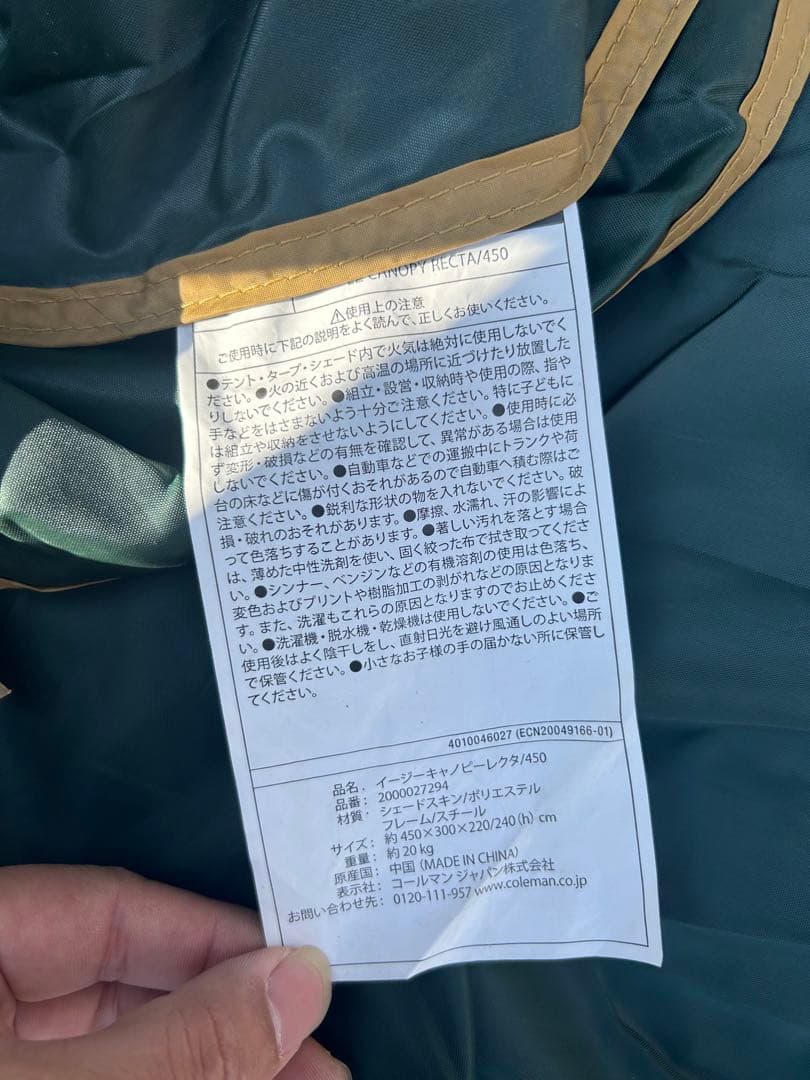 CANOPY RECTA/450
⚠使用上の注意
ご使用時に下記の説明をよく読んで、正しくお使いください。
●テント・タープ・シェード内で火気は絶対に使用しないでく
ださい。●火の近くおよび高温の場所に近づけたり放置した
りしないでください。●組立・設営・収納時や使用の際、指や
手などをはさまないよう十分ご注意ください。特に子どもに
は組立や収納をさせないようにしてください。●使用時に必
ず変形・破損などの有無を確認して、異常がある場合は使用
しないでください。●自動車などでの運搬中にトランクや荷
台の床などに傷が付くおそれがあるので自動車へ積む際はご
注意ください。●鋭利な形状の物を入れないでください。破
損・破れのおそれがあります。●摩擦、水濡れ、汗の影響によ
って色落ちすることがあります。●著しい汚れを落とす場合
は、薄めた中性洗剤を使い、固く絞った布で拭き取ってくださ
い。●シンナー、ベンジンなどの有機溶剤の使用は色落ち、
変色およびプリントや樹脂加工の剥がれなどの原因となりま
す。また、洗濯もこれらの原因となりますのでお止めくださ
い。●洗濯機・脱水機・乾燥機は使用しないでください。●ご
使用後はよく陰干しをし、直射日光を避け風通しのよい場所
で保管ください。●小さなお子様の手の届かない所に保管し
てください。
4010046027 (ECN20049166-01)
品名: イージーキャノピーレクタ/450
品番: 2000027294
材質: シェードスキン/ポリエステル
フレーム/スチール
サイズ: 約 450×300×220/240(h) cm
重量: 約 20 kg
原産国: 中国 (MADE IN CHINA)
表示社: コールマン ジャパン株式会社
お問い合わせ先: 0120-111-957 www.coleman.co.jp